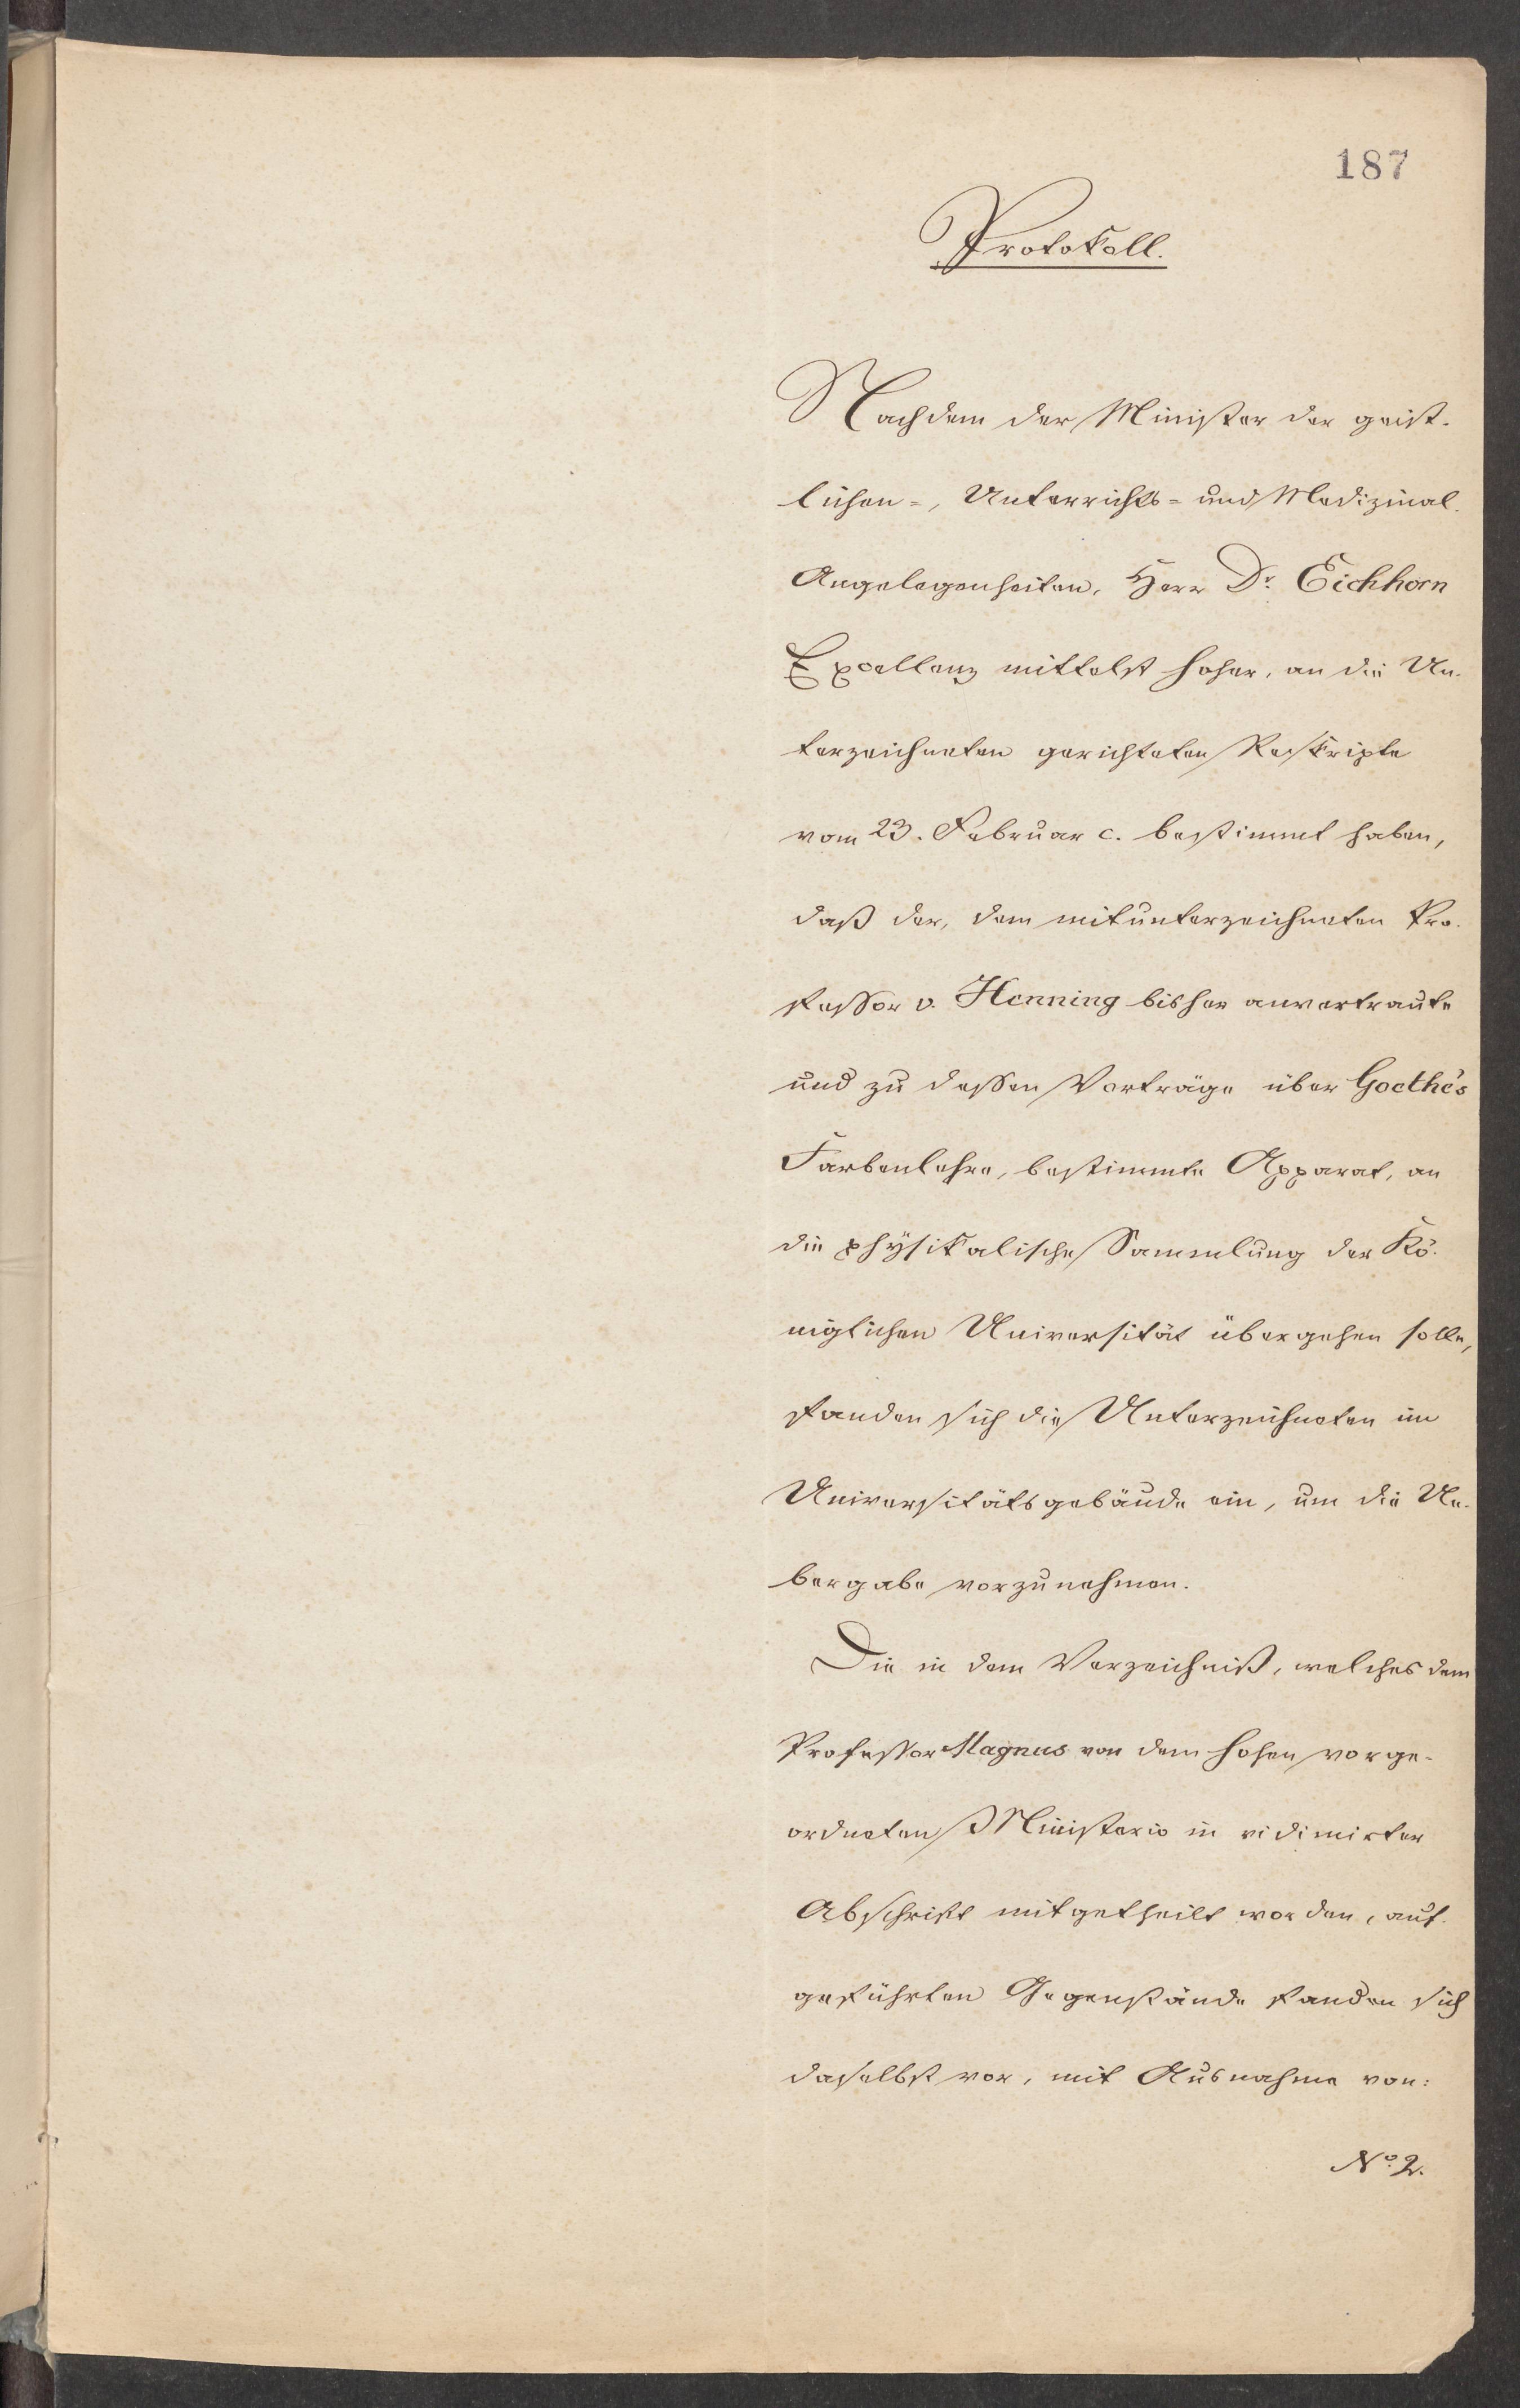 187
Protokoll.
Nachdem der Minister der geist-
lichen-, Unterrichts- und Medizinal-
Angelegenheiten, Herr Dr. Eichhorn
Excellenz mittelst hoher, an die Un-
terzeichneten gerichteten Reskripte
vom 23. Februar c. bestimmt haben,
daß der, dem mitunterzeichneten Pro-
fessor v. Henning bisher anvertraute
und zu dessen Vorträge über Goethe's
Farbenlehre, bestimmte Apparat, an
die physikalische Sammlung der Kö-
niglichen Universität übergehen solle,
fanden sich die Unterzeichneten im
Universitätsgebäude ein, um die Ue-
bergabe vorzunehmen.
Die in dem Verzeichniß, welches dem
Professor Magnus von dem hohen vorge-
ordneten Ministerio in vidimirter
Abschrift mitgetheilt worden, auf-
geführten Gegenstände fanden sich
daselbst vor, mit Ausnahme von:
No. 2.